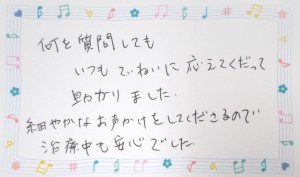 何を質問しても
いつもていねいに応えてくだって
助かりました。
細やかなお声かけをしてくださるので
治療中も安心でした